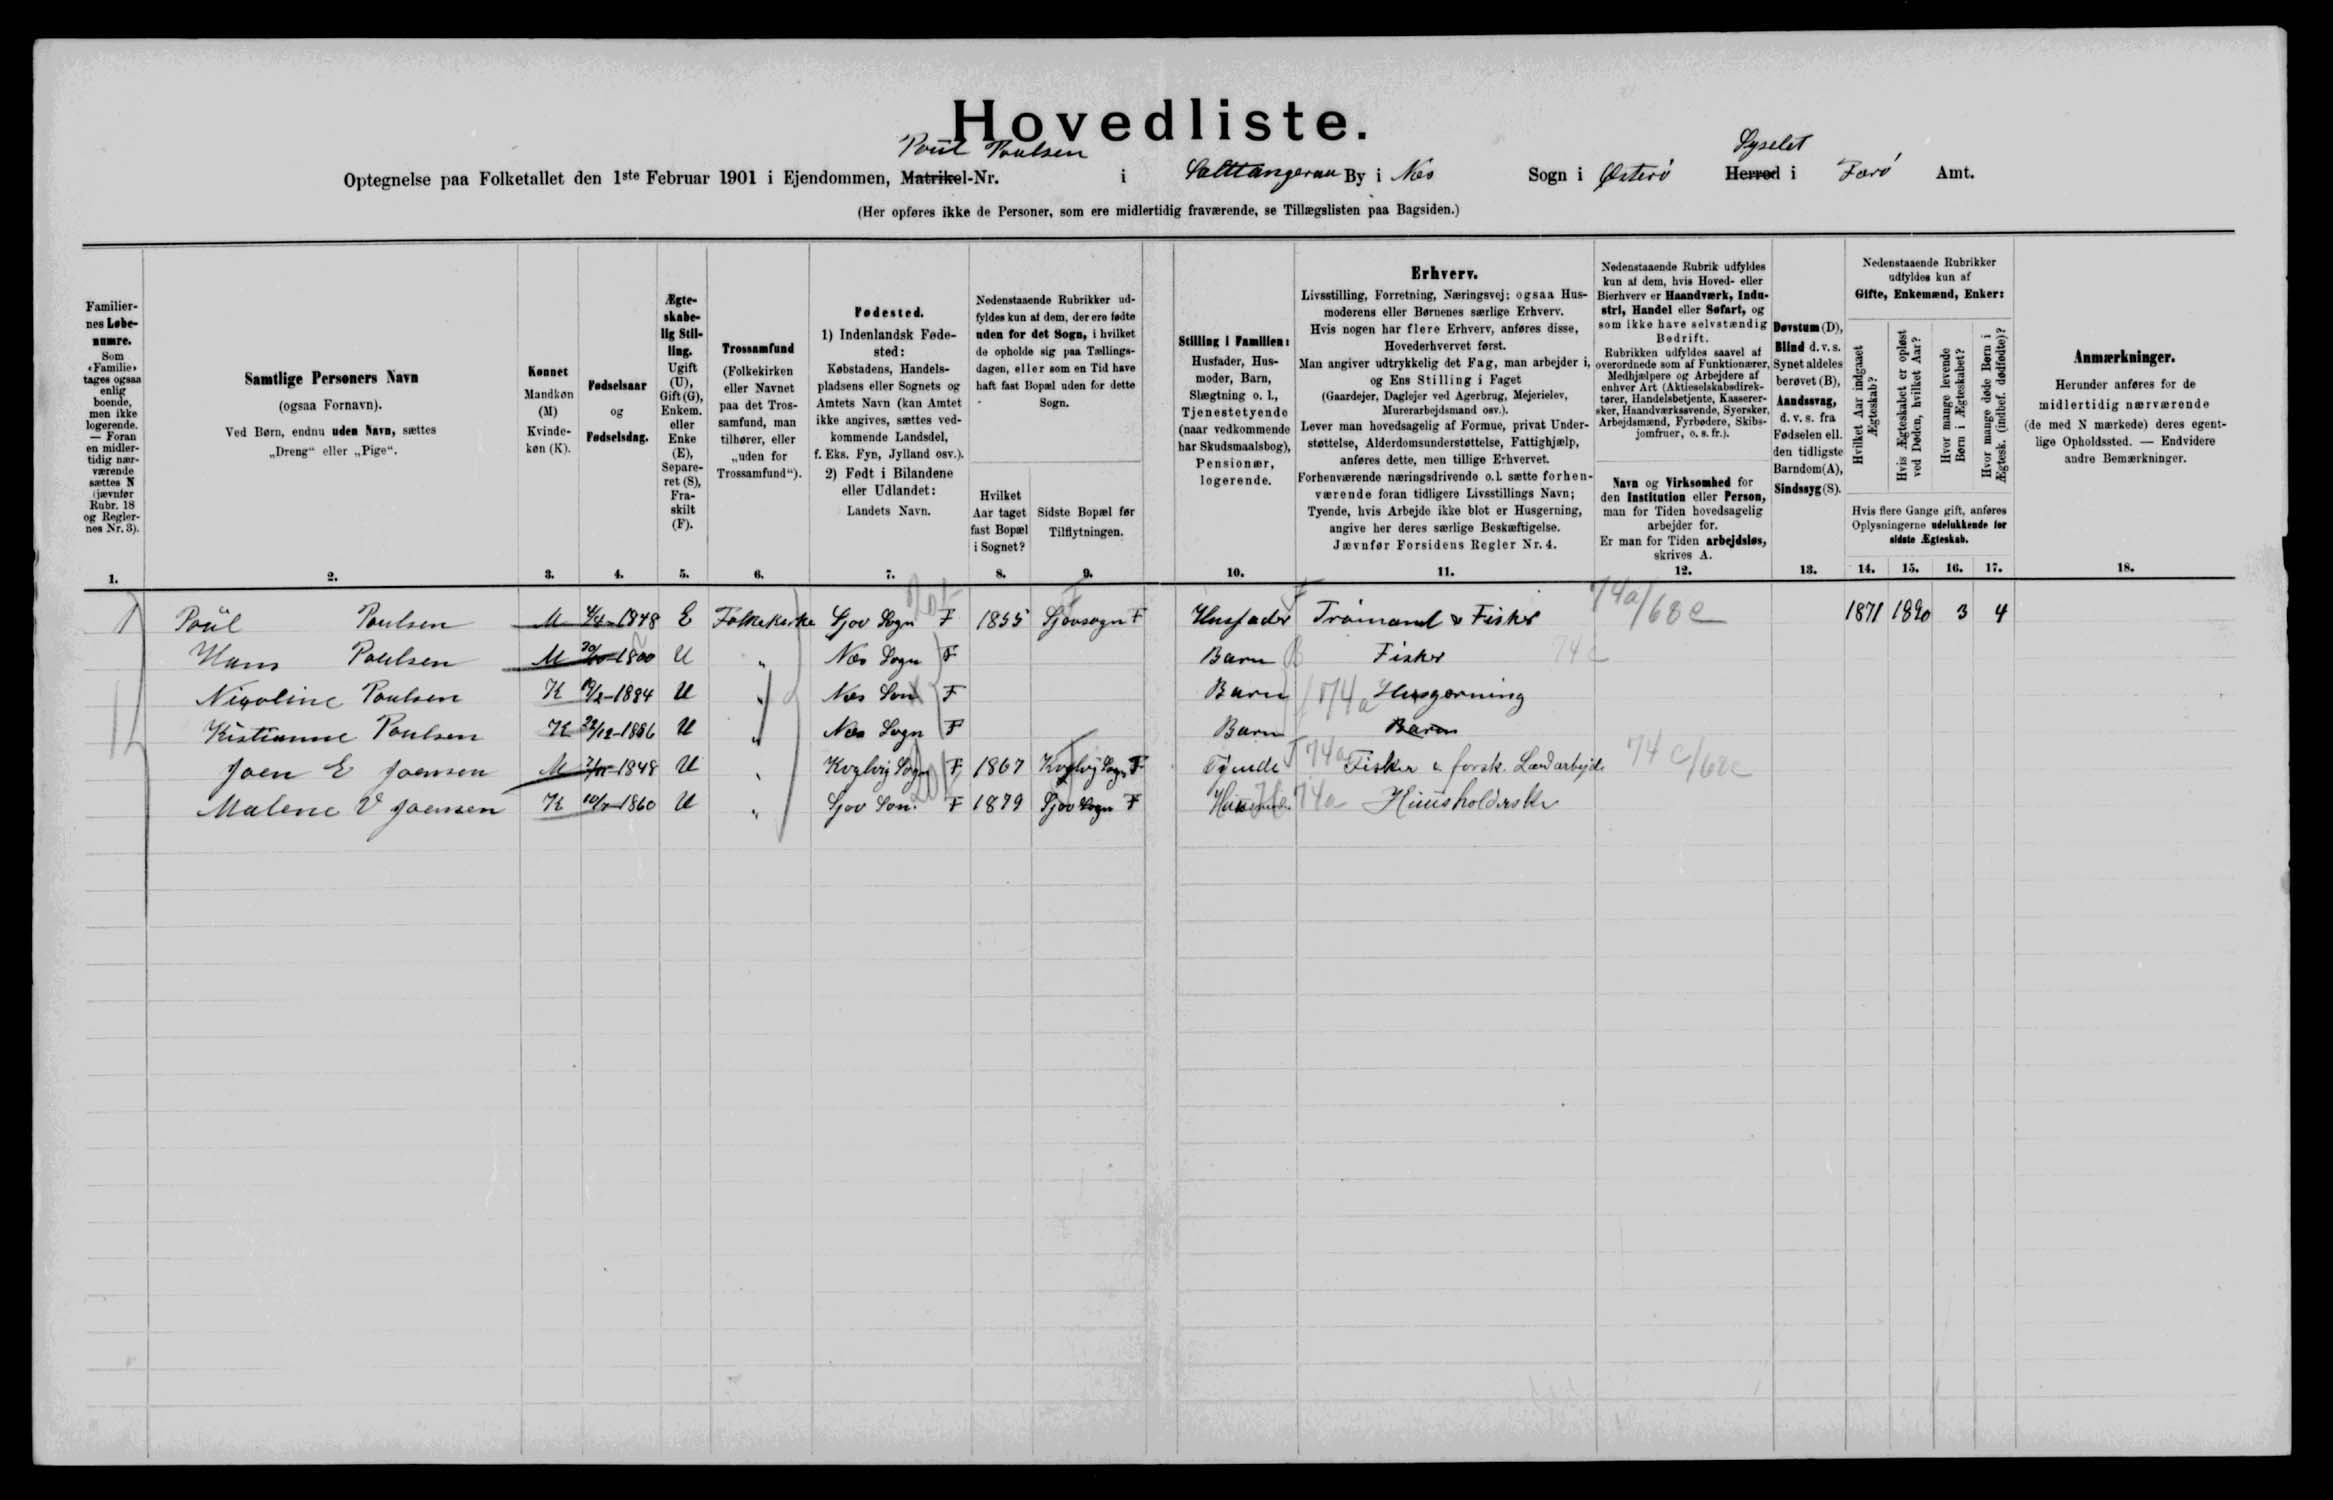 Hovedliste.
Poul Poulsen Syselet
Optegnelse paa Folketallet den 1ste Februar 1901 i Ejendommen, Matrikel-Nr. i Salttangeraa By i Næs Sogn i Østerø Herred i Færø Amt.
(Her opføres ikke de Personer, som ere midlertidig fraværende, se Tillægslisten paa Bagsiden.)
Familiernes Løbenumre.
Som «Familie» tages ogsaa enlig boende, men ikke logerende. — Foran en midlertidig nærværende sættes N (jævnfør Rubr. 18 og Reglernes Nr. 3).
Samtlige Personers Navn
(ogsaa Fornavn).
Ved Børn, endnu uden Navn, sættes
„Dreng“ eller „Pige“.
Kønnet
Mandkøn (M)
Kvindekøn (K).
Fødselsaar
og
Fødselsdag.
Ægteskabelig Stilling.
Ugift (U), Gift (G), Enkem. eller Enke (E), Separeret (S), Fraskilt (F).
Trossamfund
(Folkekirken eller Navnet paa det Trossamfund, man tilhører, eller „uden for Trossamfund“).
Fødested.
1) Indenlandsk Fødested:
Købstadens, Handelspladsens eller Sognets og Amtets Navn (kan Amtet ikke angives, sættes vedkommende Landsdel, f. Eks. Fyn, Jylland osv.).
2) Født i Bilandene eller Udlandet:
Landets Navn.
Nedenstaaende Rubrikker udfyldes kun af dem, der ere fødte uden for det Sogn, i hvilket de opholde sig paa Tællingsdagen, eller som en Tid have haft fast Bopæl uden for dette Sogn.
Hvilket Aar taget fast Bopæl i Sognet?
Sidste Bopæl før Tilflytningen.
Stilling i Familien:
Husfader, Husmoder, Barn, Slægtning o. l., Tjenestetyende (naar vedkommende har Skudsmaalsbog), Pensionær, logerende.
Erhverv.
Livsstilling, Forretning, Næringsvej; ogsaa Husmoderens eller Børnenes særlige Erhverv.
Hvis nogen har flere Erhverv, anføres disse, Hovederhvervet først.
Man angiver udtrykkelig det Fag, man arbejder i, og Ens Stilling i Faget
(Gaardejer, Daglejer ved Agerbrug, Mejerielev, Murerarbejdsmand osv.).
Lever man hovedsagelig af Formue, privat Understøttelse, Alderdomsunderstøttelse, Fattighjælp, anføres dette, men tillige Erhvervet.
Forhenværende næringsdrivende o.l. sætte forhenværende foran tidligere Livsstillings Navn; Tyende, hvis Arbejde ikke blot er Husgerning, angive her deres særlige Beskæftigelse.
Jævnfør Forsidens Regler Nr. 4.
Nedenstaaende Rubrik udfyldes kun af dem, hvis Hoved- eller Bierhverv er Haandværk, Industri, Handel eller Søfart, og som ikke have selvstændig Bedrift.
Rubrikken udfyldes saavel af overordnede som af Funktionærer, Medhjælpere og Arbejdere af enhver Art (Aktieselskabsdirektører, Handelsbetjente, Kasserersker, Haandværkssvende, Syersker, Arbejdsmænd, Fyrbødere, Skibsjomfruer, o. s. fr.).
Navn og Virksomhed for den Institution eller Person, man for Tiden hovedsagelig arbejder for.
Er man for Tiden arbejdsløs, skrives A.
Døvstum (D), Blind d. v. s. Synet aldeles berøvet (B), Aandssvag, d. v. s. fra Fødselen ell. den tidligste Barndom (A), Sindssyg (S).
Nedenstaaende Rubrikker udfyldes kun af
Gifte, Enkemænd, Enker:
Hvilket Aar indgaaet Ægteskab?
Hvis Ægteskabet er opløst ved Døden, hvilket Aar?
Hvor mange levende Børn i Ægteskabet?
Hvor mange døde Børn i Ægtesk. (indbef. dødfødte)?
Hvis flere Gange gift, anføres Oplysningerne udelukkende for sidste Ægteskab.
Anmærkninger.
Herunder anføres for de midlertidig nærværende (de med N mærkede) deres egentlige Opholdssted. — Endvidere andre Bemærkninger.
1. 2. 3. 4. 5. 6. 7. 8. 9. 10. 11. 12. 13. 14. 15. 16. 17. 18.
1 Poul Poulsen M 1848 E Folkekirke Sjov Sogn F 1855 Sjovsogn F Husfader Fisker 74a/68c 1871 1890 3 4
Hans Poulsen M U „ Næs Sogn F Barn Fisker 74c
Nicoline Poulsen K 1884 U „ Næs Son F Barn 74a Husgerning
Kistianne Poulsen K 1886 U „ Næs Sogn F Barn Barn
Joen E Joensen M 1848 U „ Kvglvig Sogn F 1867 Kvglvig Sogn F Tyende 74a Fisker 74c/68c
Malene V Joensen K 1860 U „ Sjov Son. F 1879 Sjov Sogn F 74a Huusholderske